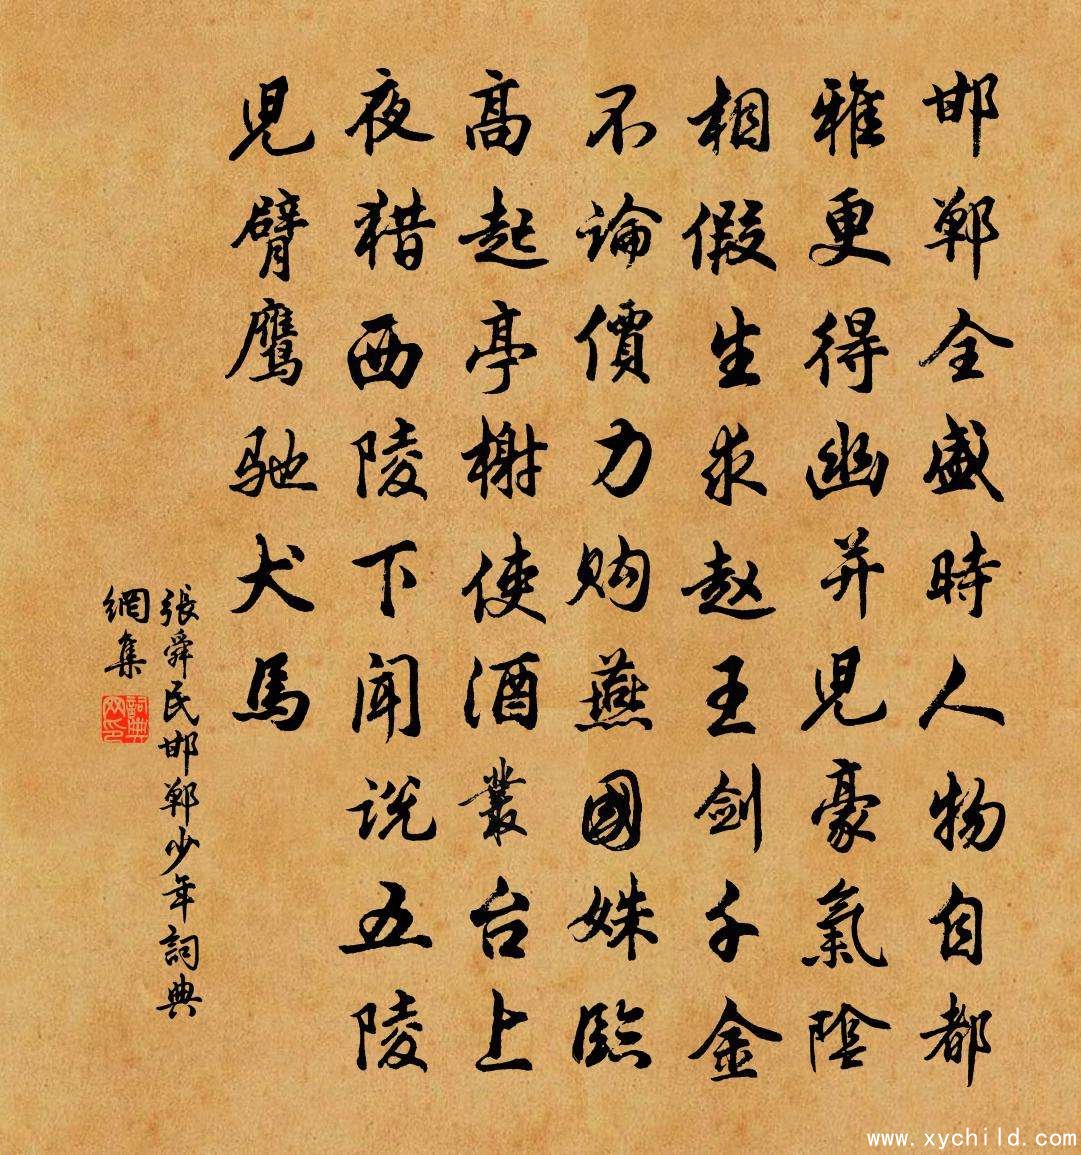 邯鄲全盛時人物自都
雅更得幽并児豪氣陰
相假生求赵王剑千金
不論價力购燕國姝臨
高起亭榭使酒叢台上
夜猎西陵下闻说五陵
児臂鹰驰犬馬
張舜民邯鄲少年詞典
網集
詞典
www.xychild.com